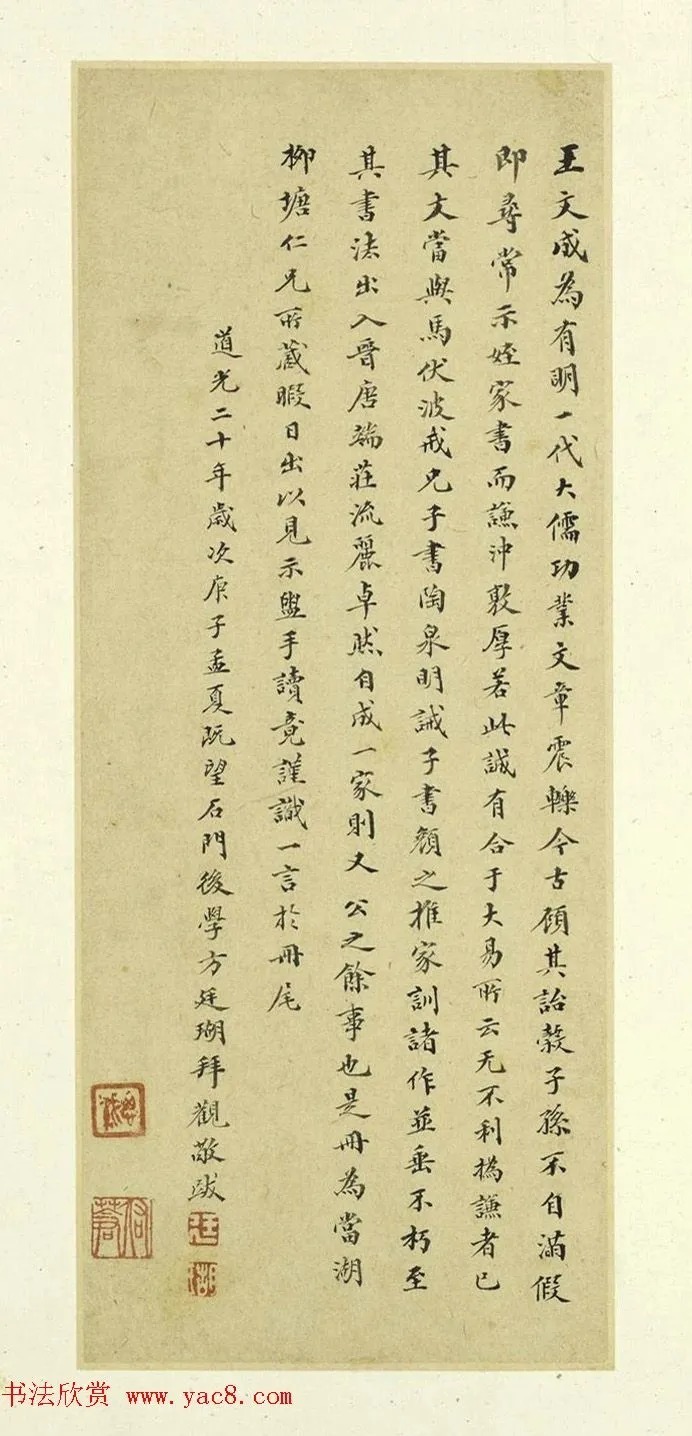 王文成為有明一代大儒功業文章震轢今古顧其詒穀子孫不自滿假
即尋常示姪家書而謙沖敦厚若此誠有合于大易所云无不利撝謙者已
其文當與馬伏波戒兄子書陶泉明誡子書顏之推家訓諸作並垂不朽至
其書法出入晉唐端莊流麗卓然自成一家則又公之餘事也是冊為當湖
柳塘仁兄所藏暇日出以見示盥手讀竟謹識一言於冊尾
道光二十年歲次庚子孟夏既望石門後學方廷瑚拜觀敬跋
书法欣赏 www.yac8.com